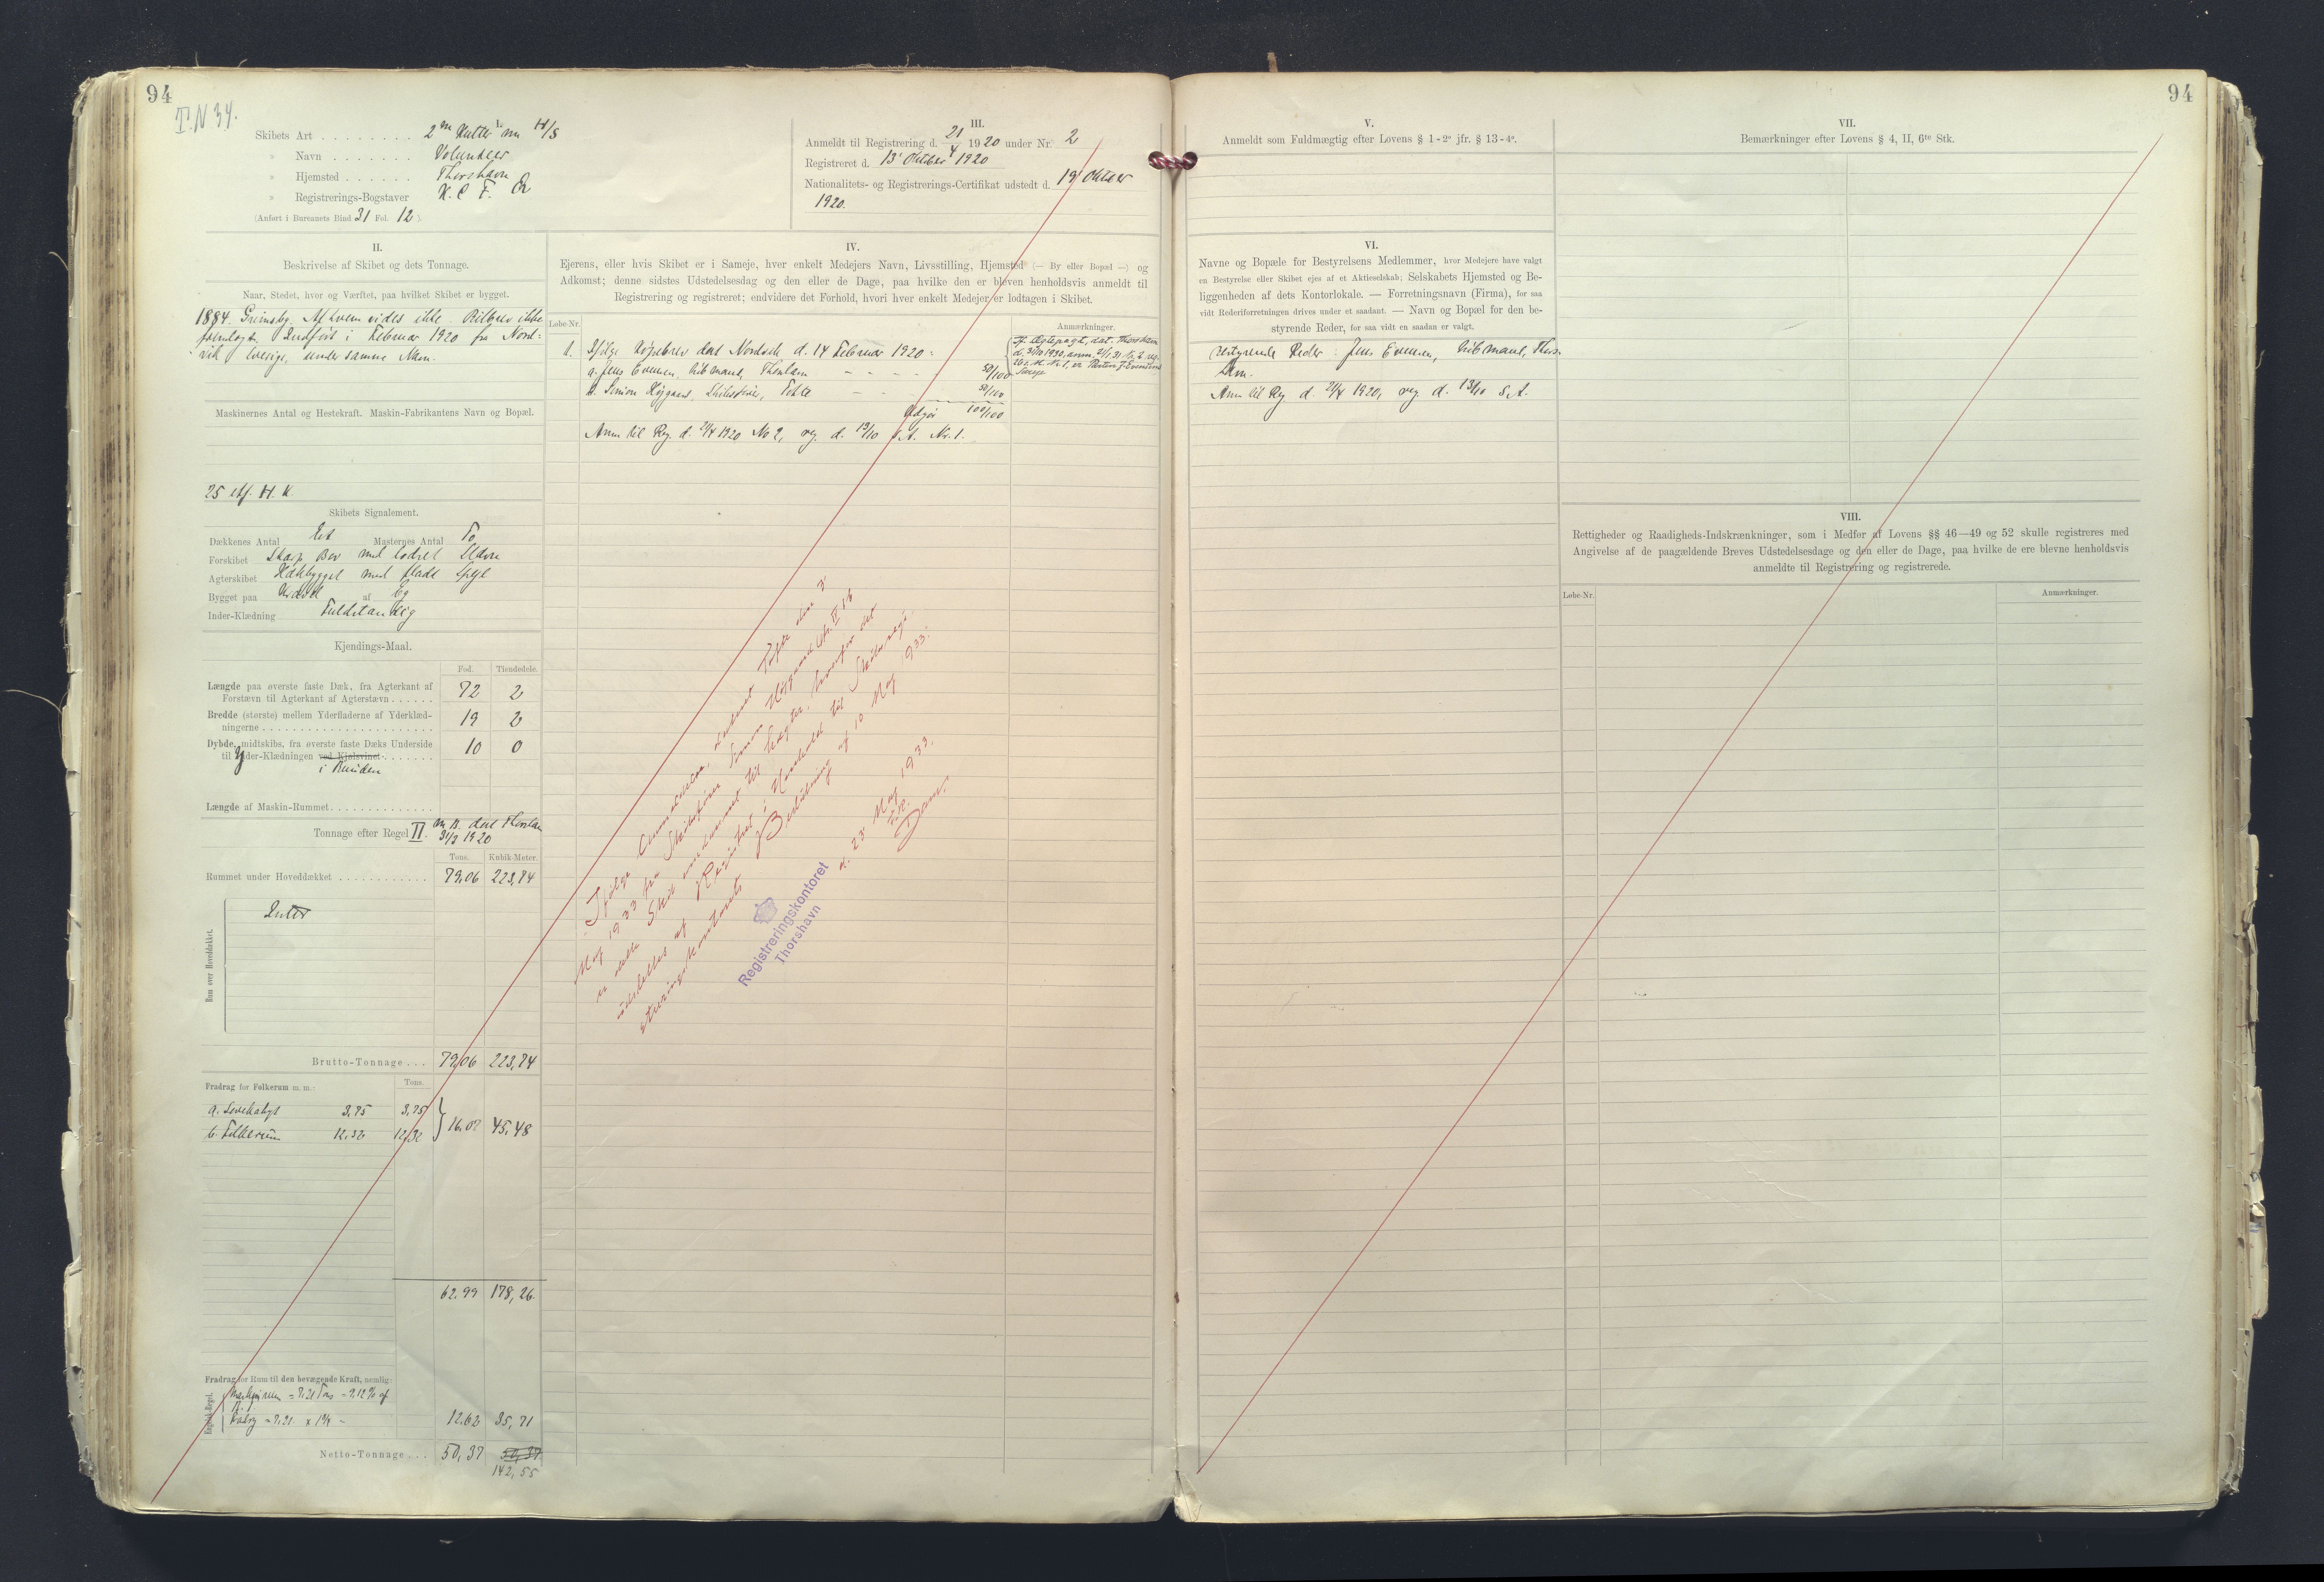 94
T.N 34.
Skibets Art . . . . . . . . 2 m Kutter m H/S
» Navn . . . . . . . Volunteer
» Hjemsted . . . . . . Thorshavn
» Registrerings-Bogstaver N. C. F.
(Anført i Bureauets Bind 31 Fol. 12).
III.
Anmeldt til Registrering d. 21/4 1920 under Nr. 2
Registreret d. 13' Oktober 1920
Nationalitets- og Registrerings-Certifikat udstedt d. 19' Oktober
1920.
II.
Beskrivelse af Skibet og dets Tonnage.
Naar, Stedet, hvor og Værftet, paa hvilket Skibet er bygget.
1884. Grimsby. Af hvem vides ikke. Bilbrev ikke
forevlagt. Indført i Februar 1920 fra Nord-
vik Sverige, under samme Navn.
Maskinernes Antal og Hestekraft. Maskin-Fabrikantens Navn og Bopæl.
25 eff. H. K.
Skibets Signalement.
Dækkenes Antal Et Masternes Antal To
Forskibet Skarp Bov med lodret Stævn
Agterskibet Hækbygget med fladt Spejl
Bygget paa Kravel af Eg
Inder-Klædning Fuldstændig
Kjendings-Maal.
Fod. Tiendedele.
Længde paa øverste faste Dæk, fra Agterkant af
Forstævn til Agterkant af Agterstævn . . . . . . 72 2
Bredde (største) mellem Yderfladerne af Yderklæd-
ningerne . . . . . . . . . . 19 2
Dybde, midtskibs, fra øverste faste Dæks Underside
til Yder-Klædningen ved Kjølsvinet . . . . . . . 10 0
i Bunden
Længde af Maskin-Rummet . . . . . . . . . . . . . .
Tonnage efter Regel II. M. B. dat Thorshavn
31/3 1920
Tons. Kubik-Meter.
Rummet under Hoveddækket . . . . . . . . . . . . 79,06 223,74
Rum over Hoveddækket.
Intet
Brutto-Tonnage . . . 79,06 223,74
Fradrag for Folkerum m. m.: Tons.
a. Lovekahyt 3,75 3,75
b. Folkerum 12,32 12,32
16,07 45,48
62,99 178,26
Fradrag for Rum til den bevægende Kraft, nemlig:
Maskinrum = 7,21 Tons = 9,12 % af
B.
Fradrag = 7,21 x 1 3/4 = 12,62 35,71
Netto-Tonnage . . . 50,37 50,37
142,55
IV.
Ejerens, eller hvis Skibet er i Sameje, hver enkelt Medejers Navn, Livsstilling, Hjemsted (— By eller Bopæl —) og
Adkomst; denne sidstes Udstedelsesdag og den eller de Dage, paa hvilke den er bleven henholdsvis anmeldt til
Registrering og registreret; endvidere det Forhold, hvori hver enkelt Medejer er lodtagen i Skibet.
Løbe-Nr. Anmærkninger.
1. Ifølge Købebrev dat Nordvik d. 14 Februar 1920:
a. Jens Evensen, Købmand, Thorshavn - - - - 50/100
b. Simon Højgaard, Skibsfører, Tofte - - 50/100
Udgør 100/100
Anm til Reg. d. 21/4 1920 No 2, reg. d. 13/10 s. A. Nr. 1.
If. Ægtepagt, dat. Thorshavn
Ifølge Anmeldelse, dateret Tofte den 3'
Maj 1933 fra Skibsfører Simon Højgaard
er dette Skib omdannet til Lægter, hvorfor det
udslettes af Registret i Henhold til Skibsregi-
streringskontorets Beslutning af 10 Maj 1933.
d. 23' Maj 1933.
Dam.
Registreringskontoret
Thorshavn
94
V.
Anmeldt som Fuldmægtig efter Lovens § 1-2° jfr. § 13-4°.
VI.
Navne og Bopæle for Bestyrelsens Medlemmer, hvor Medejere have valgt
en Bestyrelse eller Skibet ejes af et Aktieselskab; Selskabets Hjemsted og Be-
liggenheden af dets Kontorlokale. — Forretningsnavn (Firma), for saa
vidt Rederiforretningen drives under et saadant. — Navn og Bopæl for den be-
styrende Reder, for saa vidt en saadan er valgt.
Bestyrende Reder: Jens Evensen, Købmand, Thors-
havn.
Anm til Reg d. 21/4 1920, reg d. 13/10 s. A.
VII.
Bemærkninger efter Lovens § 4, II, 6te Stk.
VIII.
Rettigheder og Raadigheds-Indskrænkninger, som i Medfør af Lovens §§ 46—49 og 52 skulle registreres med
Angivelse af de paagældende Breves Udstedelsesdage og den eller de Dage, paa hvilke de ere blevne henholdsvis
anmeldte til Registrering og registrerede.
Løbe-Nr. Anmærkninger.